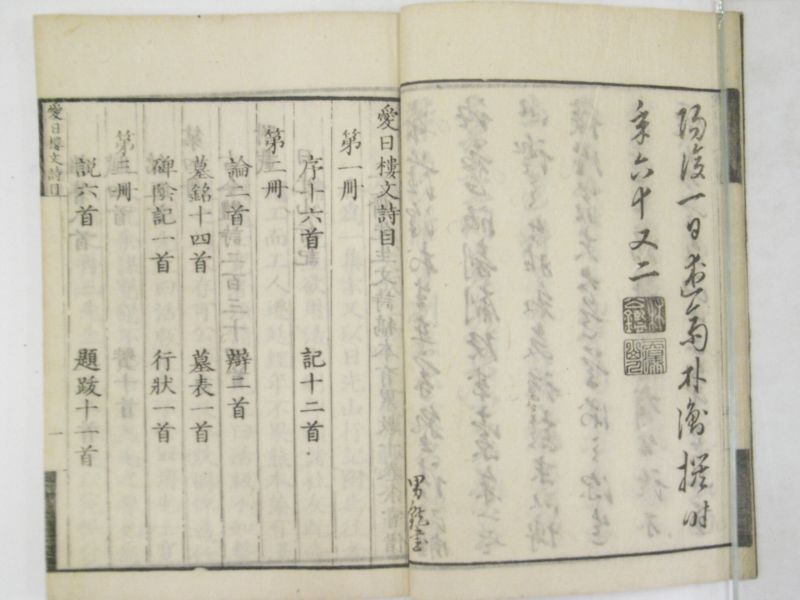 陽後一日愛島朴澹撰時
年六十又二
男龍書
愛日樓文詩目
第一冊
序十六首 記十二首
第二冊
論二首 辯二首
墓銘十四首 墓表一首
碑陰記一首 行狀一首
第三冊
説六首 題跋十一首
愛日樓文詩目